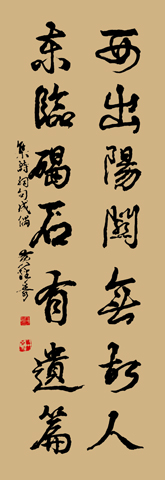 西出陽關無故人
東臨碣石有遺篇
集詩詞句成偶